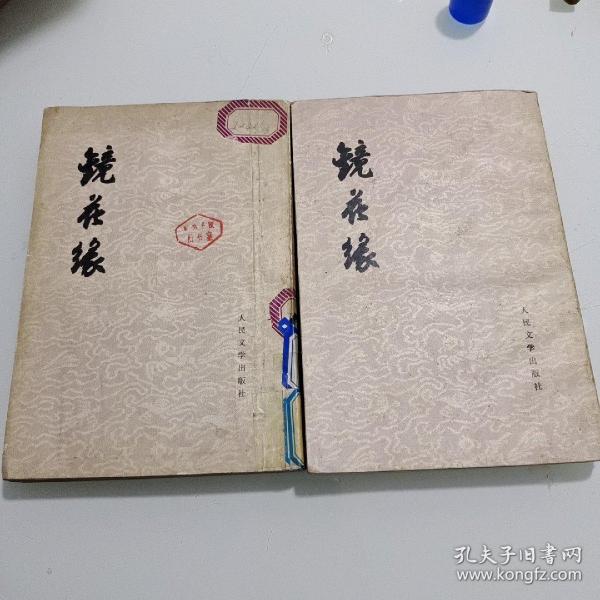 镜花缘
人民文学出版社
镜花缘
人民文学出版社
孔夫子旧书网
www.kongfz.com